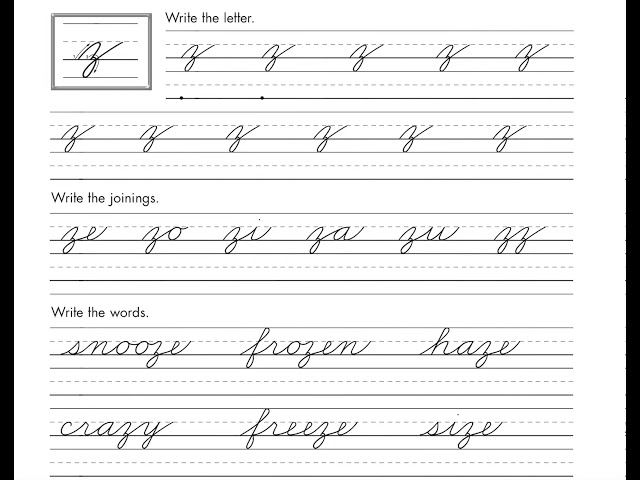 Write the letter.
z z z z z z
z z z z z z
Write the joinings.
ze zo zi za zu zz
Write the words.
snooze frozen haze
crazy freeze size